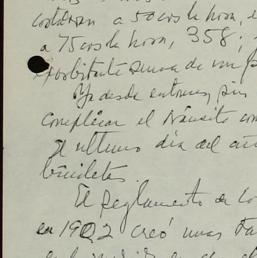 costaban a 50 cvs la hora, e
a 75 cvs la hora, 358;
exorbitante suma de un p
Ya desde entonces, sin
complicar el tránsito con
el ultimo día del año
bicicletas.
El Reglamento de Co
en 1922 creó unas Ta